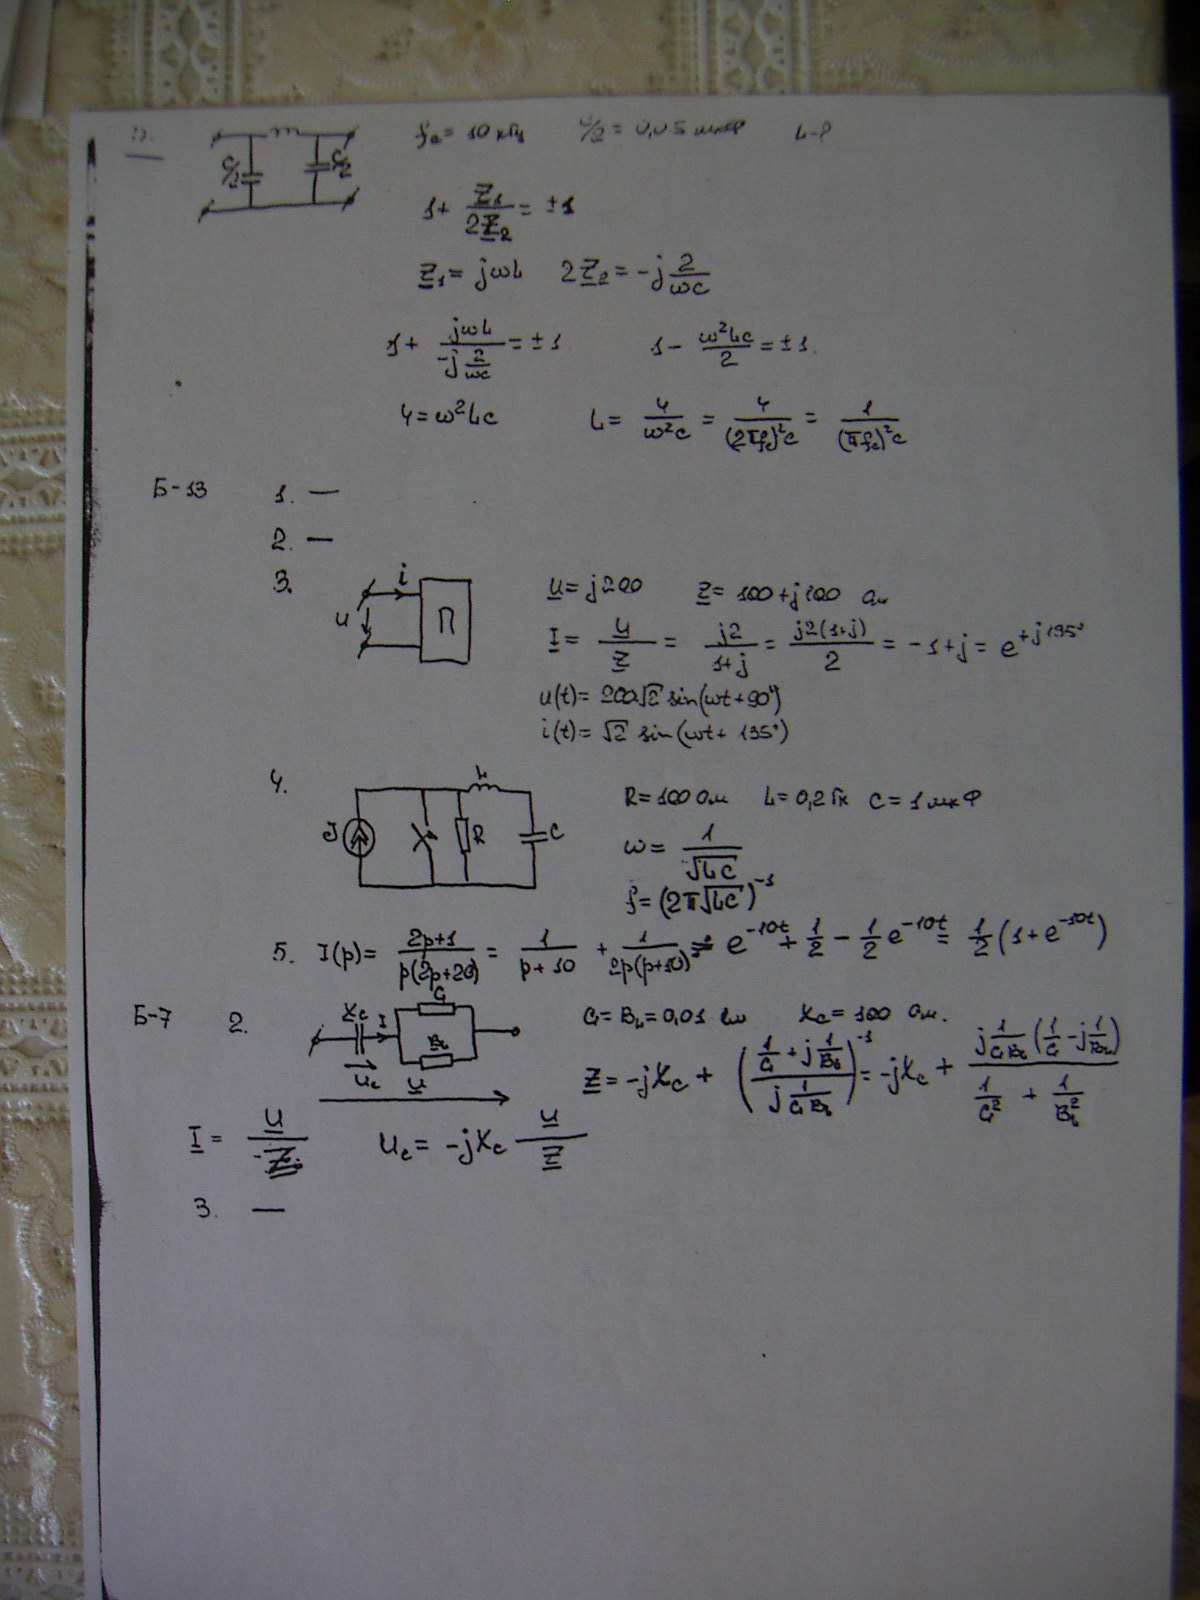 5. C/2 C/2 fc = 10 кГц C/2 = 0,05 мкФ L-?
1 + Z1/2Z2 = ±1
Z1 = jωL 2Z2 = -j 2/ωC
1 + jωL/(-j 2/ωC) = ±1 1 - ω²LC/2 = ±1.
4 = ω²LC L = 4/ω²C = 4/(2πfc)²C = 1/(πfc)²C
Б-13 1. —
2. —
3. i u П U = j200 Z = 100 + j100 Ом
I = U/Z = j2/(1+j) = j2(1+j)/2 = -1+j = e^+j135°
u(t) = 200√2 sin(ωt + 90°)
i(t) = √2 sin(ωt + 135°)
4. J R L C R = 100 Ом L = 0,2 Гн C = 1 мкФ
ω = 1/√LC
f = (2π√LC)^-1
5. I(p) = (2p+1)/(p(2p+20)) = 1/(p+10) + 1/(2p(p+10)) ⇌ e^-10t + 1/2 - 1/2 e^-10t = 1/2 (1 + e^-10t)
Б-7 2. Xc I G BL Uc U G = BL = 0,01 См Xc = 100 Ом.
Z = -jXc + ((1/G + j 1/BL)/(j 1/GBL))^-1 = -jXc + (j 1/GBL (1/G - j 1/BL))/(1/G² + 1/BL²)
I = U/Z Uc = -jXc U/Z
3. —